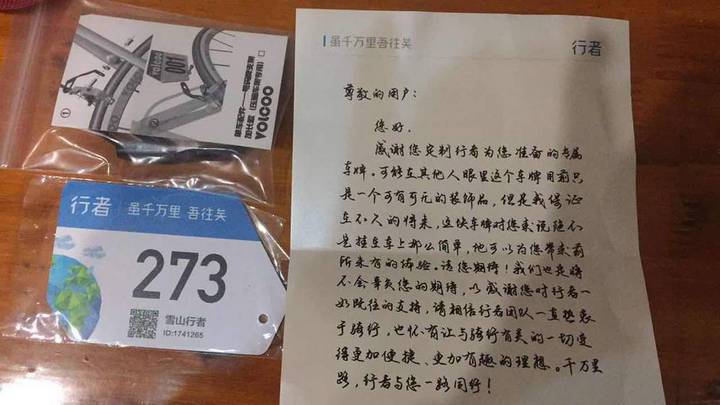 行者 | 虽千万里 吾往矣
273
雪山行者
ID:1741265
VOICOO
| 虽千万里吾往矣
行者
尊敬的用户：
您好，
感谢您定制行者为您准备的专属
车牌。可能在其他人眼里这个车牌目前只
是一个可有可无的装饰品，但是我保证
在不久的将来，这块车牌对您来说绝不
是挂在车上那么简单，他可以为您带来前
所未有的体验。请您期待！我们也是将
不会辜负您的期待，以感谢您对行者一
如既往的支持，请相信行者团队一直热衷
于骑行，也怀有让与骑行有关的一切变
得更加便捷、更加有趣的理想。千万里
路，行者与您一路同行！